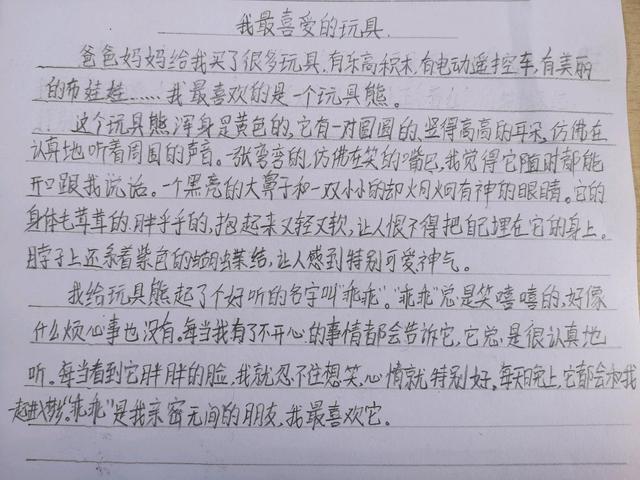 我最喜爱的玩具.
爸爸妈妈给我买了很多玩具.有乐高积木,有电动遥控车,有美丽
的布娃娃……我最喜欢的是一个玩具熊。
这个玩具熊浑身是黄色的,它有一对圆圆的、竖得高高的耳朵,仿佛在
认真地听着周围的声音。一张弯弯的,仿佛在笑的嘴巴,我觉得它随时都能
开口跟我说话。一个黑亮的大鼻子和一双小小的却炯炯有神的眼睛。它的
身体毛茸茸的,胖乎乎的,抱起来又轻又软,让人恨不得把自己埋在它的身上。
脖子上还系着紫色的蝴蝶结,让人感到特别可爱,神气。
我给玩具熊起了个好听的名字叫“乖乖”。“乖乖”总是笑嘻嘻的,好像
什么烦心事也没有。每当我有了不开心的事情都会告诉它,它总是很认真地
听。每当看到它胖胖的脸,我就忍不住想笑,心情就特别好。每天晚上,它都会和我一
起进入梦乡。“乖乖”是我亲密无间的朋友,我最喜欢它。